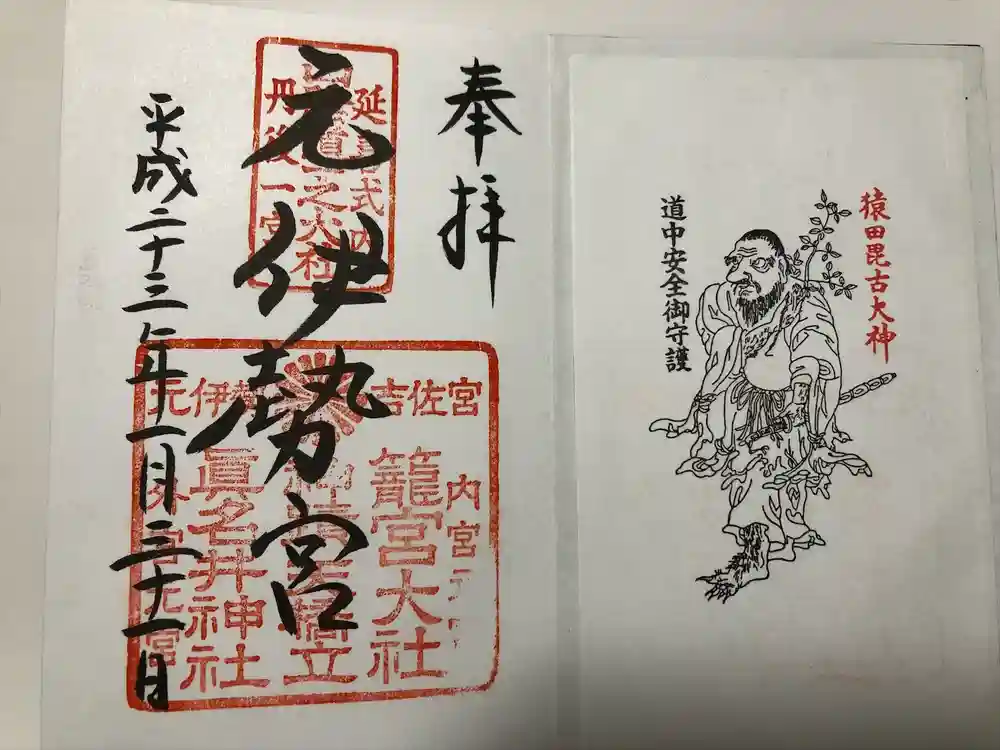 猿田毘古大神
道中安全御守護
奉拝
元伊勢宮
平成二十三年一月三十一日
延喜式内
之大社
丹後一宮
元伊勢
吉佐宮
内宮元宮
籠宮大社
天橋立
眞名井神社
外宮元宮